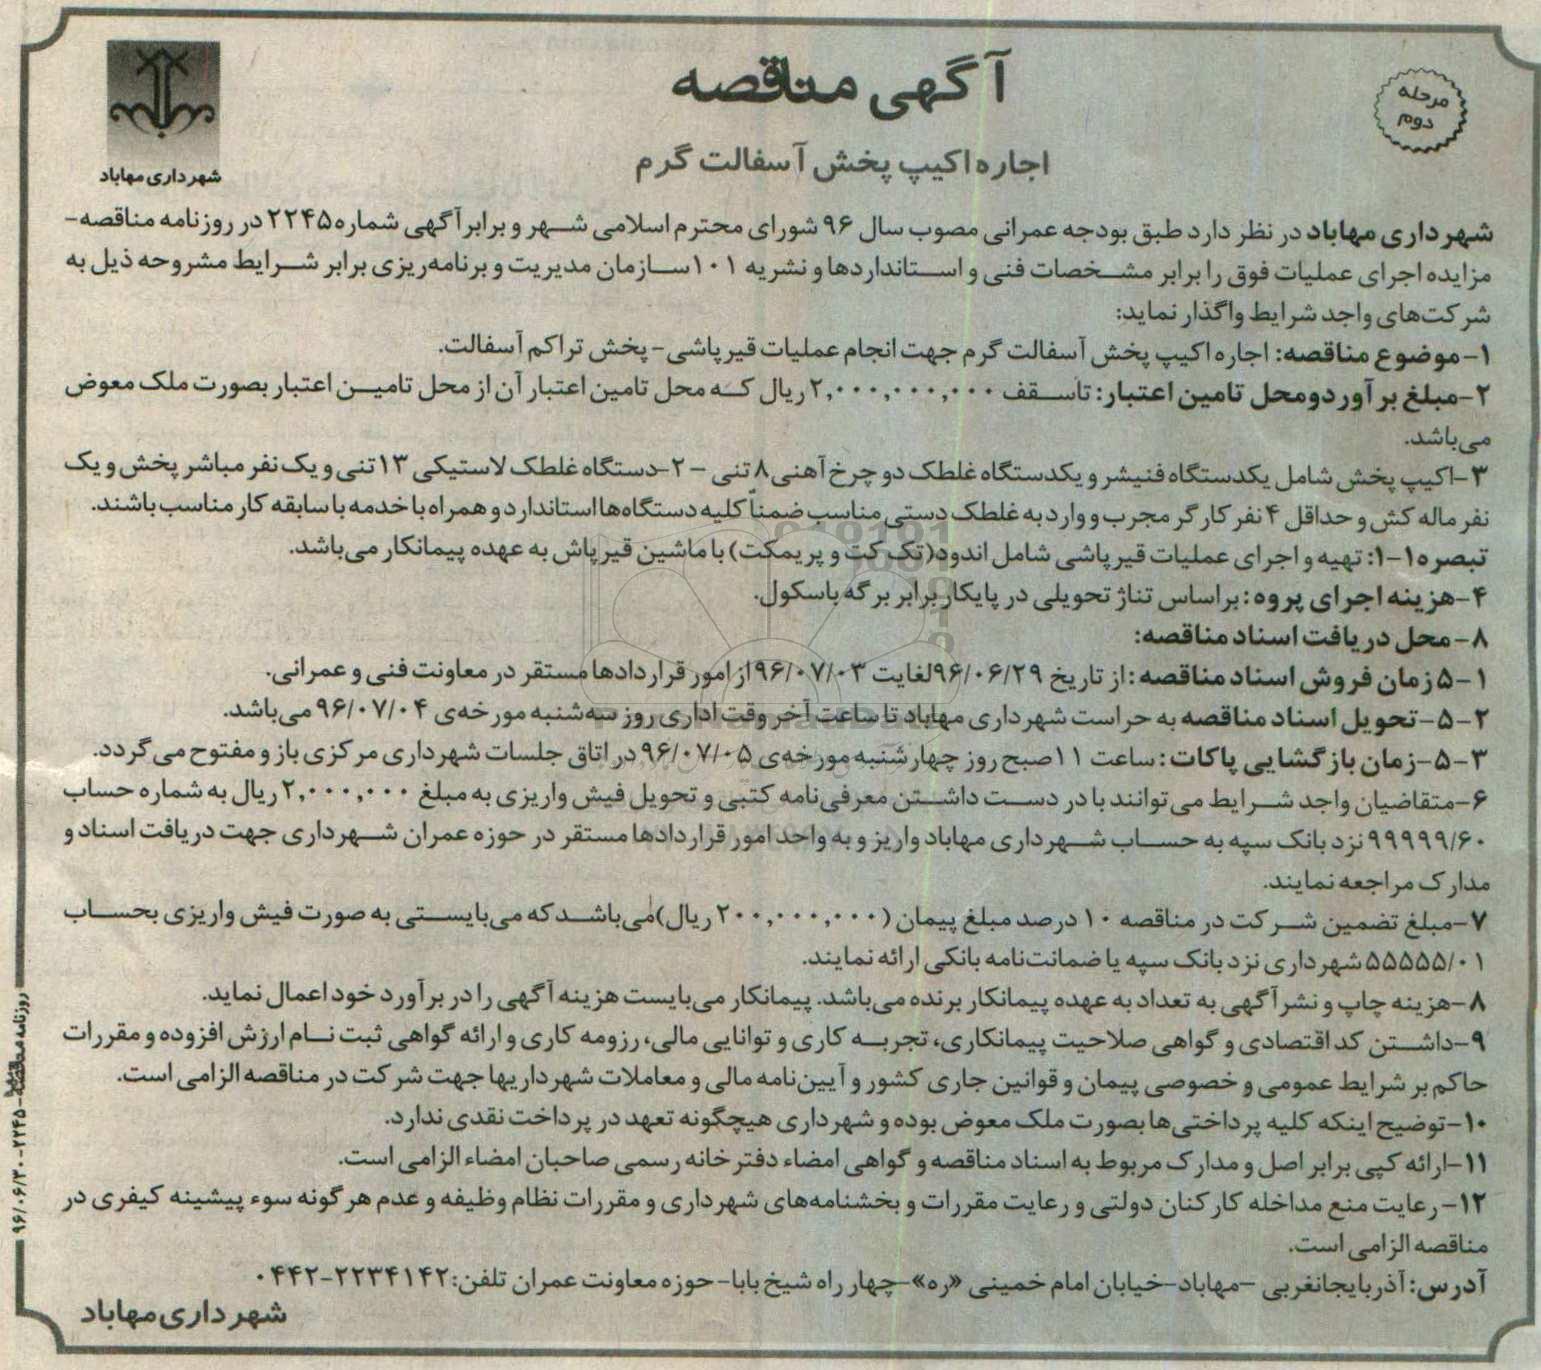 مرحله
دوم
آگهی مناقصه
اجاره اکیپ پخش آسفالت گرم
شهرداری مهاباد
شهرداری مهاباد در نظر دارد طبق بودجه عمرانی مصوب سال ۹۶ شورای محترم اسلامی شهر و برابر آگهی شماره ۲۲۴۵ در روزنامه مناقصه-
مزایده اجرای عملیات فوق را برابر مشخصات فنی و استانداردها و نشریه ۱۰۱ سازمان مدیریت و برنامه‌ریزی برابر شرایط مشروحه ذیل به
شرکت‌های واجد شرایط واگذار نماید:
۱-موضوع مناقصه: اجاره اکیپ پخش آسفالت گرم جهت انجام عملیات قیرپاشی- پخش تراکم آسفالت.
۲-مبلغ برآورد و محل تامین اعتبار: تا سقف ۲,۰۰۰,۰۰۰,۰۰۰ ریال که محل تامین اعتبار آن از محل تامین اعتبار بصورت ملک معوض
می‌باشد.
۳-اکیپ پخش شامل یکدستگاه فنیشر و یکدستگاه غلطک دو چرخ آهنی ۸ تنی - ۲-دستگاه غلطک لاستیکی ۱۳ تنی و یک نفر مباشر پخش و یک
نفر ماله کش و حداقل ۴ نفر کارگر مجرب و وارد به غلطک دستی مناسب ضمناً کلیه دستگاه‌ها استاندارد و همراه با خدمه با سابقه کار مناسب باشند.
تبصره ۱-۱: تهیه و اجرای عملیات قیرپاشی شامل اندود (تک کت و پریمکت) با ماشین قیرپاش به عهده پیمانکار می‌باشد.
۴-هزینه اجرای پروه: براساس تناژ تحویلی در پایکار برابر برگه باسکول.
۸- محل دریافت اسناد مناقصه:
۵-۱ زمان فروش اسناد مناقصه: از تاریخ ۹۶/۰۶/۲۹ لغایت ۹۶/۰۷/۰۳ از امور قراردادها مستقر در معاونت فنی و عمرانی.
۵-۲-تحویل اسناد مناقصه به حراست شهرداری مهاباد تا ساعت آخر وقت اداری روز سه‌شنبه مورخه‌ی ۹۶/۰۷/۰۴ می‌باشد.
۵-۳-زمان بازگشایی پاکات: ساعت ۱۱ صبح روز چهارشنبه مورخه‌ی ۹۶/۰۷/۰۵ در اتاق جلسات شهرداری مرکزی باز و مفتوح می‌گردد.
۶-متقاضیان واجد شرایط می‌توانند با در دست داشتن معرفی‌نامه کتبی و تحویل فیش واریزی به مبلغ ۲,۰۰۰,۰۰۰ ریال به شماره حساب
۹۹۹۹۹/۶۰ نزد بانک سپه به حساب شهرداری مهاباد واریز و به واحد امور قراردادها مستقر در حوزه عمران شهرداری جهت دریافت اسناد و
مدارک مراجعه نمایند.
۷-مبلغ تضمین شرکت در مناقصه ۱۰ درصد مبلغ پیمان (۲۰۰,۰۰۰,۰۰۰ ریال) می‌باشد که می‌بایستی به صورت فیش واریزی بحساب
۵۵۵۵۵/۰۱ شهرداری نزد بانک سپه یا ضمانت‌نامه بانکی ارائه نمایند.
۸-هزینه چاپ و نشر آگهی به تعداد به عهده پیمانکار برنده می‌باشد. پیمانکار می‌بایست هزینه آگهی را در برآورد خود اعمال نماید.
۹-داشتن کد اقتصادی و گواهی صلاحیت پیمانکاری، تجربه کاری و توانایی مالی، رزومه کاری و ارائه گواهی ثبت نام ارزش افزوده و مقررات
حاکم بر شرایط عمومی و خصوصی پیمان و قوانین جاری کشور و آیین‌نامه مالی و معاملات شهرداریها جهت شرکت در مناقصه الزامی است.
۱۰-توضیح اینکه کلیه پرداختی‌ها بصورت ملک معوض بوده و شهرداری هیچگونه تعهد در پرداخت نقدی ندارد.
۱۱-ارائه کپی برابر اصل و مدارک مربوط به اسناد مناقصه و گواهی امضاء دفترخانه رسمی صاحبان امضاء الزامی است.
۱۲- رعایت منع مداخله کارکنان دولتی و رعایت مقررات و بخشنامه‌های شهرداری و مقررات نظام وظیفه و عدم هرگونه سوء پیشینه کیفری در
مناقصه الزامی است.
آدرس: آذربایجانغربی -مهاباد-خیابان امام خمینی «ره»-چهار راه شیخ بابا- حوزه معاونت عمران تلفن: ۰۴۴۲-۲۲۳۴۱۴۲
شهرداری مهاباد
روزنامه مناقصه مزایده-۲۲۴۵-۹۶/۰۶/۳۰